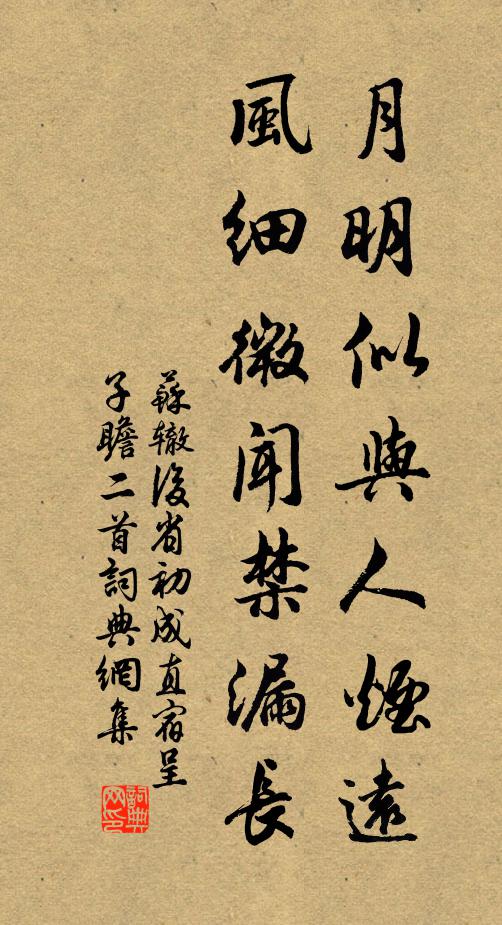 月明似與人煙遠
風細微聞禁漏長
蘇辙後省初成直宿呈
子瞻二首詞典網集
詞典
网印